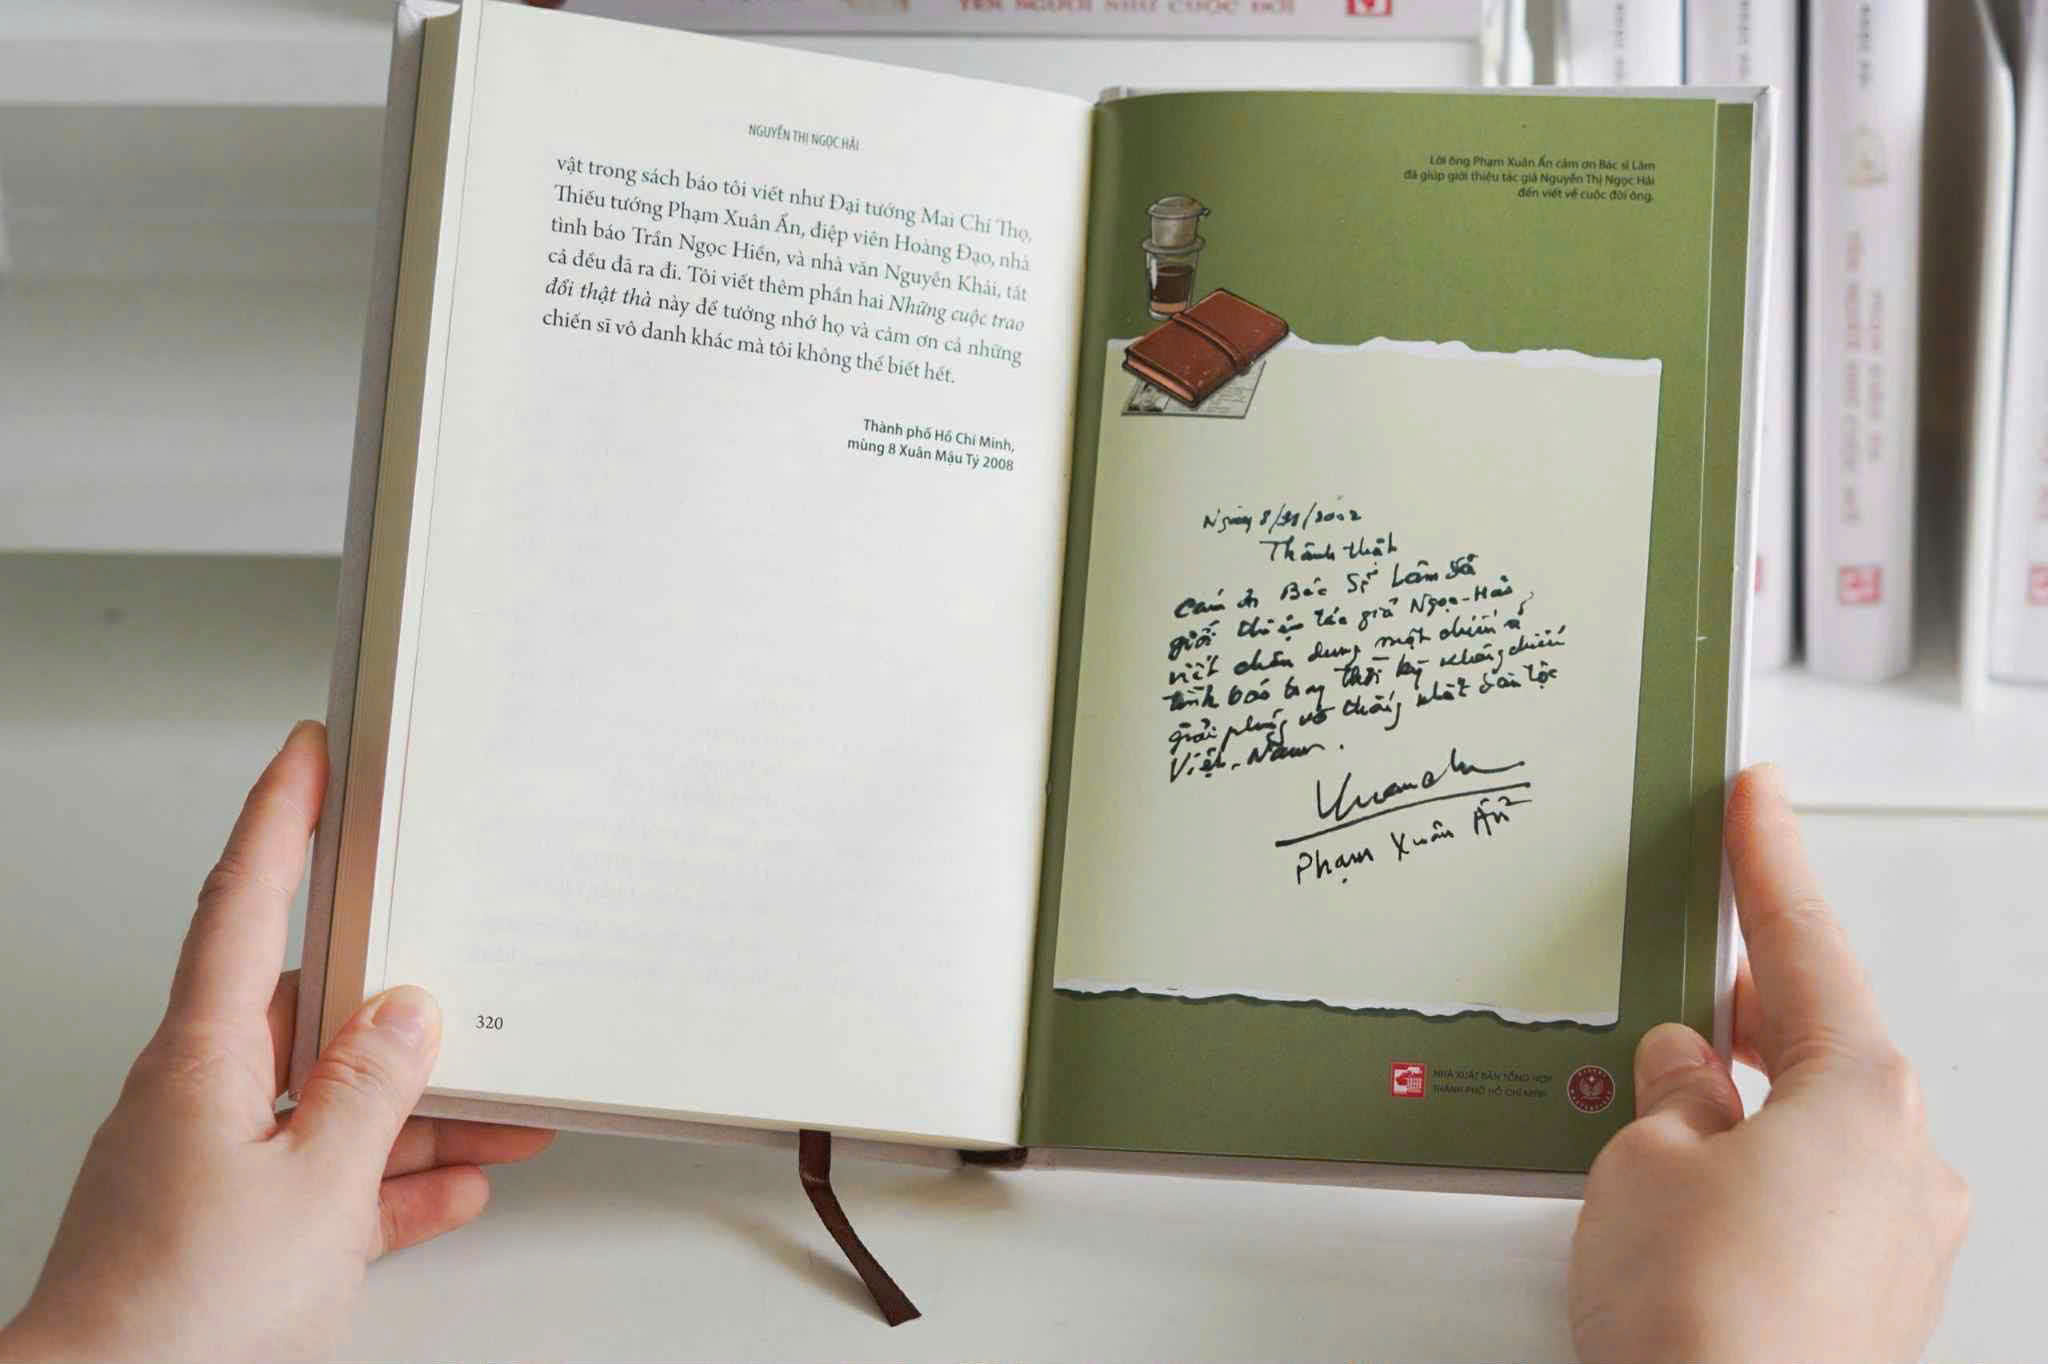 YÊN NGƯỜI NHƯ CUỘC ĐỜI
NGUYỄN THỊ NGỌC HẢI
vật trong sách báo tôi viết như Đại tướng Mai Chí Thọ,
Thiếu tướng Phạm Xuân Ẩn, điệp viên Hoàng Đạo, nhà
tình báo Trần Ngọc Hiền, và nhà văn Nguyễn Khải, tất
cả đều đã ra đi. Tôi viết thêm phần hai Những cuộc trao
đổi thật thà này để tưởng nhớ họ và cảm ơn cả những
chiến sĩ vô danh khác mà tôi không thể biết hết.
Thành phố Hồ Chí Minh,
mùng 8 Xuân Mậu Tý 2008
320
Lời ông Phạm Xuân Ẩn cảm ơn Bác sĩ Lâm
đã giúp giới thiệu tác giả Nguyễn Thị Ngọc Hải
đến viết về cuộc đời ông.
Ngày 2002
Thành thật
cám ơn Bác Sĩ Lâm đã
giới thiệu tác giả Ngọc-Hải
viết chân dung một chiến sĩ
tình báo trong thời kỳ kháng chiến
giải phóng và thống nhất dân tộc
Việt-Nam.
Phạm Xuân Ẩn
NHÀ XUẤT BẢN TỔNG HỢP
THÀNH PHỐ HỒ CHÍ MINH